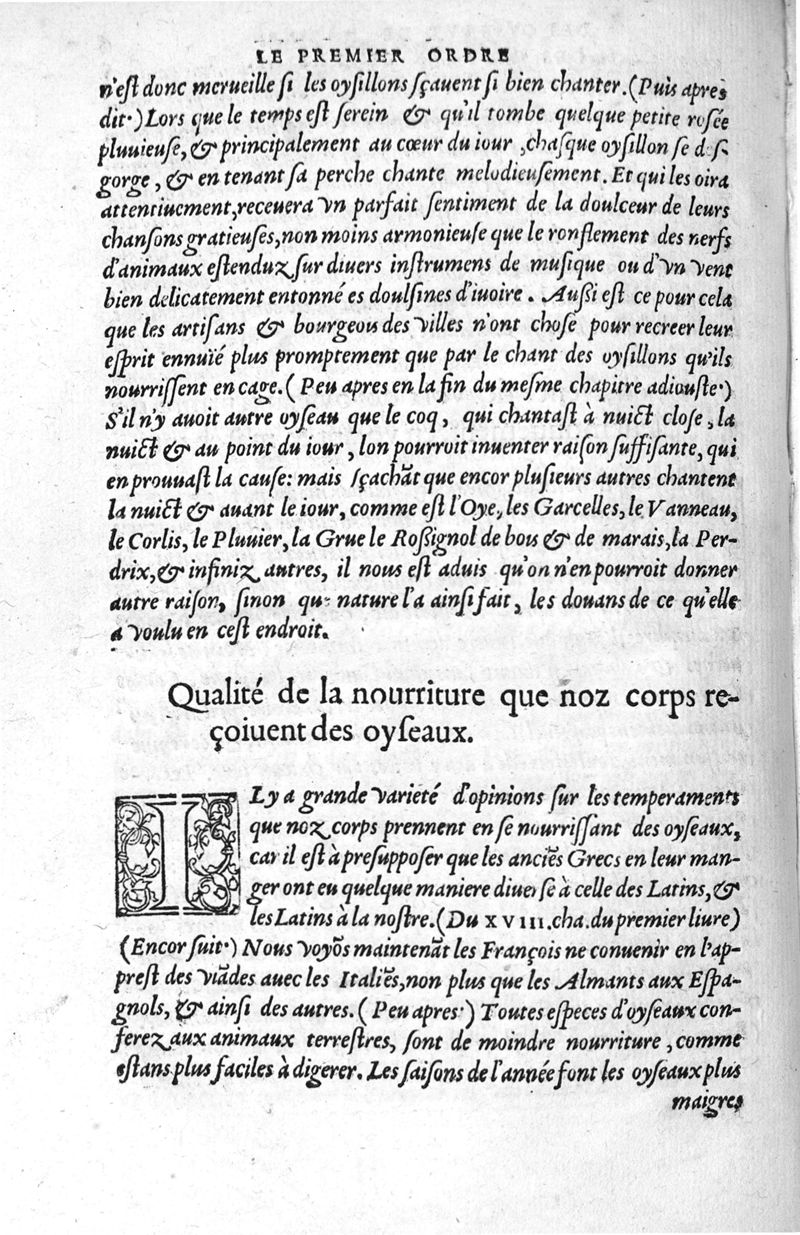 LE PREMIER ORDRE
n'eſt donc merueille ſi les oyſillons ſçauent ſi bien chanter. (Puis apres
dit·) Lors que le temps eſt ſerein & qu'il tombe quelque petite roſée
pluuieuſe, & principalement au cœur du iour, chaſque oyſillon ſe deſ-
gorge, & en tenant ſa perche chante melodieuſement. Et qui les oira
attentiuement, receuera vn parfait ſentiment de la doulceur de leurs
chanſons gratieuſes, non moins armonieuſe que le ronflement des nerfs
d'animaux eſtenduz ſur diuers inſtrumens de muſique ou d'vn vent
bien delicatement entonné es doulſines d'iuoire. Außi eſt ce pour cela
que les artiſans & bourgeous des villes n'ont choſe pour recreer leur
eſprit ennuïé plus promptement que par le chant des oyſillons qu'ils
nourriſſent en cage. (Peu apres en la fin du meſme chapitre adiouſte·)
S'il n'y auoit autre oyſeau que le coq, qui chantaſt à nuict cloſe, la
nuict & au point du iour, lon pourroit inuenter raiſon ſuffiſante, qui
en prouuaſt la cauſe: mais ſçachãt que encor pluſieurs autres chantent
la nuict & auant le iour, comme eſt l'Oye, les Garcelles, le Vanneau,
le Corlis, le Pluuier, la Grue le Roßignol de bois & de marais, la Per-
drix, & infiniz autres, il nous eſt aduis qu'on n'en pourroit donner
autre raiſon, ſinon que nature l'a ainſi fait, les douans de ce qu'elle
a voulu en ceſt endroit.
Qualité de la nourriture que noz corps re-
çoiuent des oyſeaux.
IL y a grande varieté d'opinions ſur les temperaments
que noz corps prennent en ſe nourriſſant des oyſeaux,
car il eſt à preſuppoſer que les anciẽs Grecs en leur man-
ger ont eu quelque maniere diuerſe à celle des Latins, &
les Latins à la noſtre. (Du XVIII. cha. du premier liure)
(Encor ſuit·) Nous voyõs maintenãt les François ne conuenir en l'ap-
preſt des viãdes auec les Italiẽs, non plus que les Almants aux Eſpa-
gnols, & ainſi des autres. (Peu apres·) Toutes eſpeces d'oyſeaux con-
ferez aux animaux terreſtres, ſont de moindre nourriture, comme
eſtans plus faciles à digerer. Les ſaiſons de l'année font les oyſeaux plus
maigres